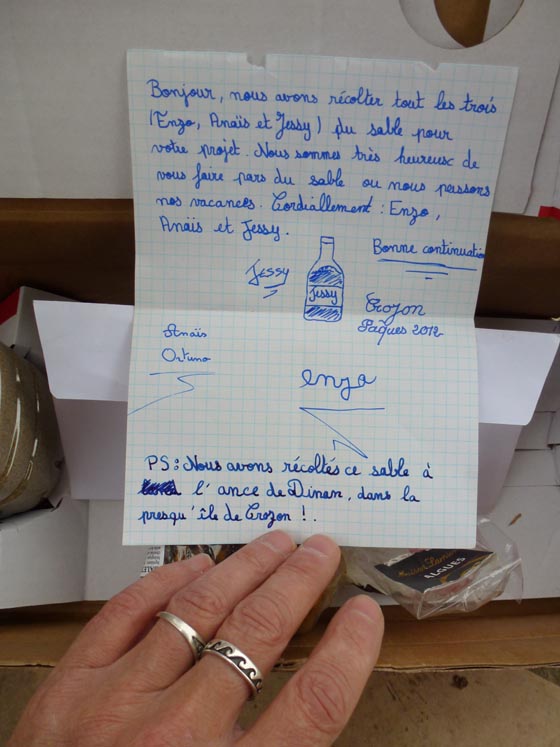 Bonjour, nous avons récolter tout les trois
(Enzo, Anaïs et Jessy) du sable pour
votre projet. Nous sommes très heureux de
vous faire pars du sable ou nous passons
nos vacances. Cordiallement : Enzo,
Anaïs et Jessy.
Bonne continuation
Jessy
Jessy
Crozon
Pâques 2012
Anaïs
Ortuno
enzo
PS : Nous avons récoltés ce sable à
l'ance de Dinan, dans la
presqu'île de Crozon !.
ALGUES